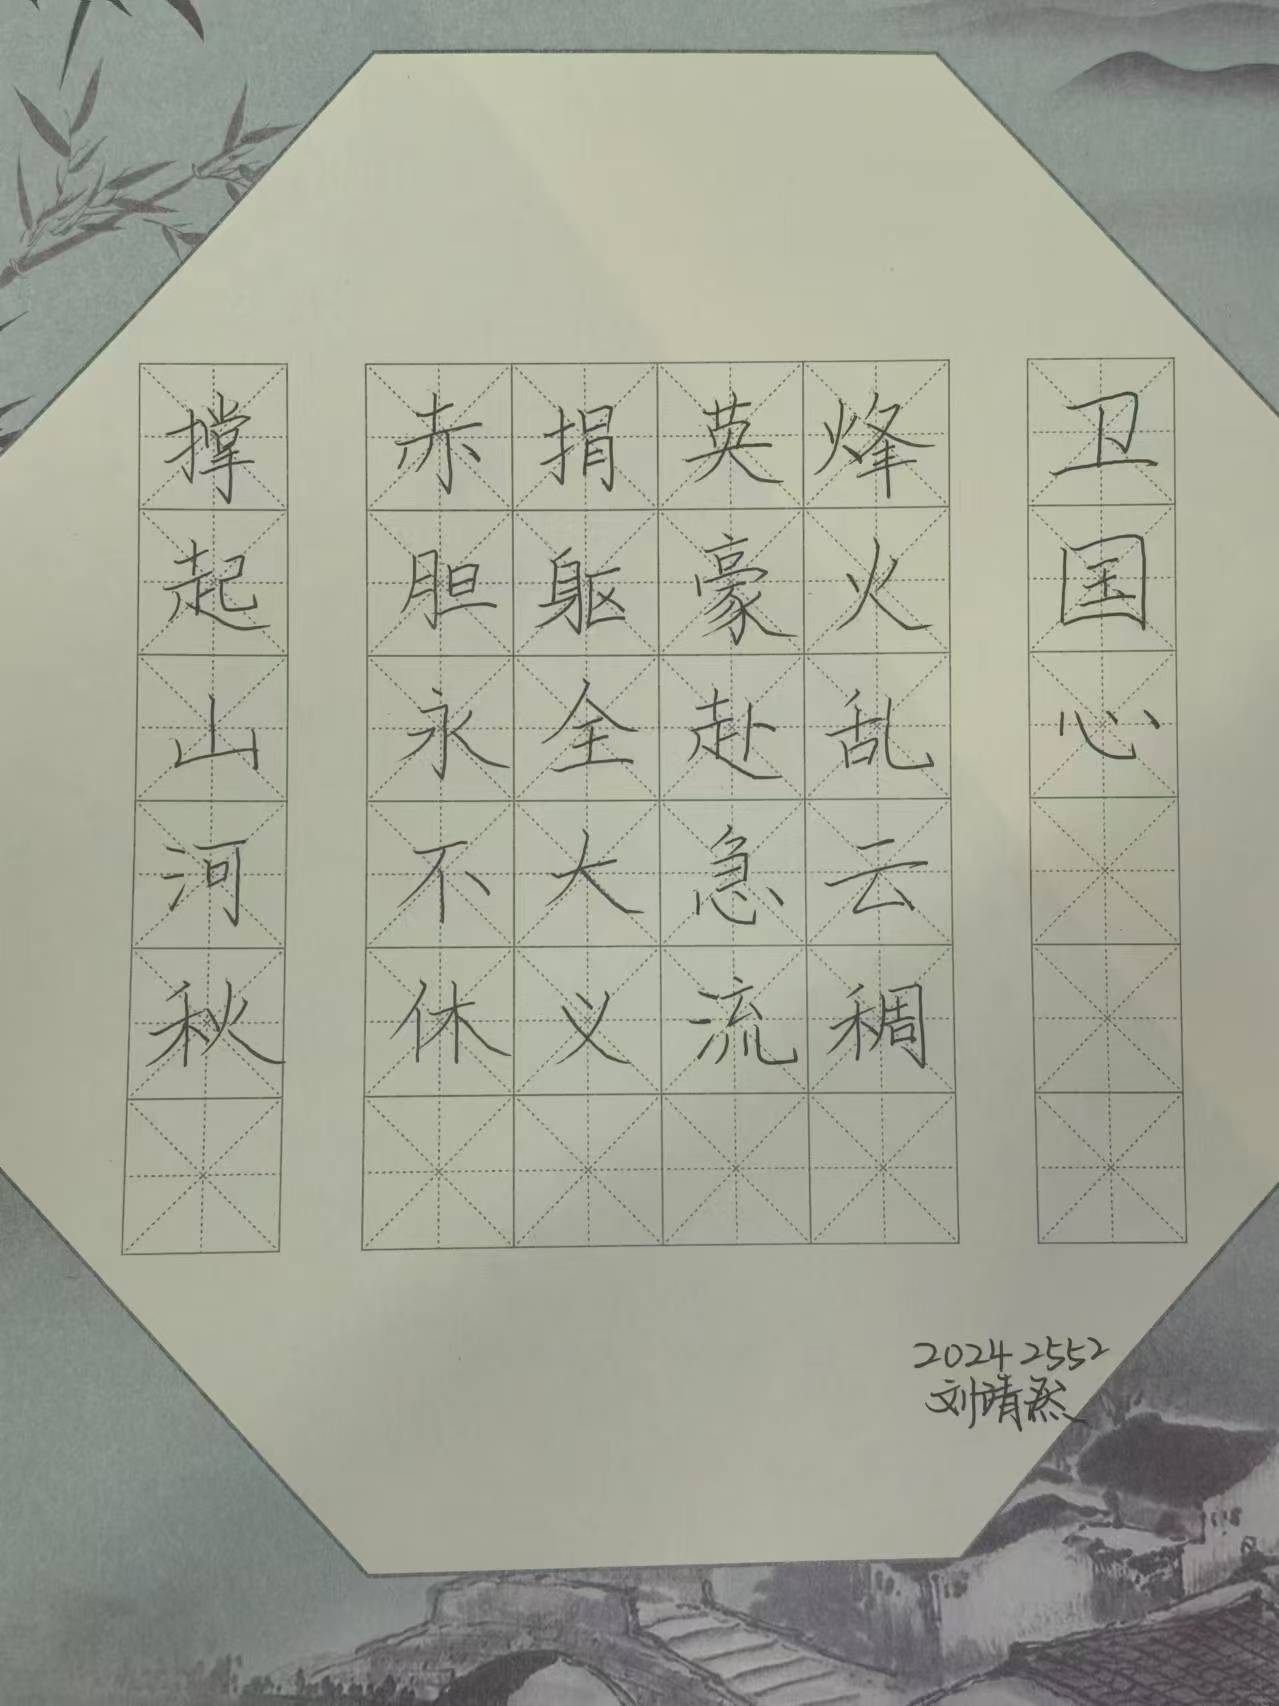 卫国心
烽火乱云稠
英豪赴急流
捐躯全大义
赤胆永不休
撑起山河秋
20242552
刘靖烝